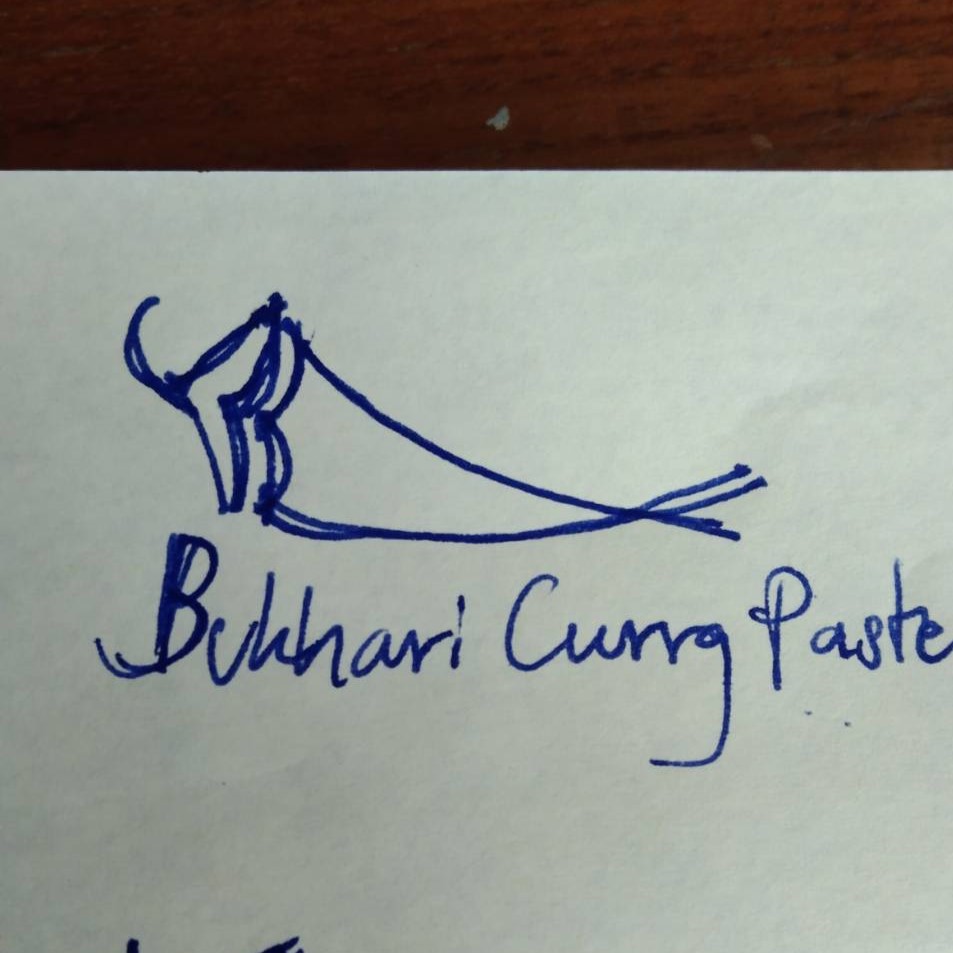 Bukhari Curry Paste